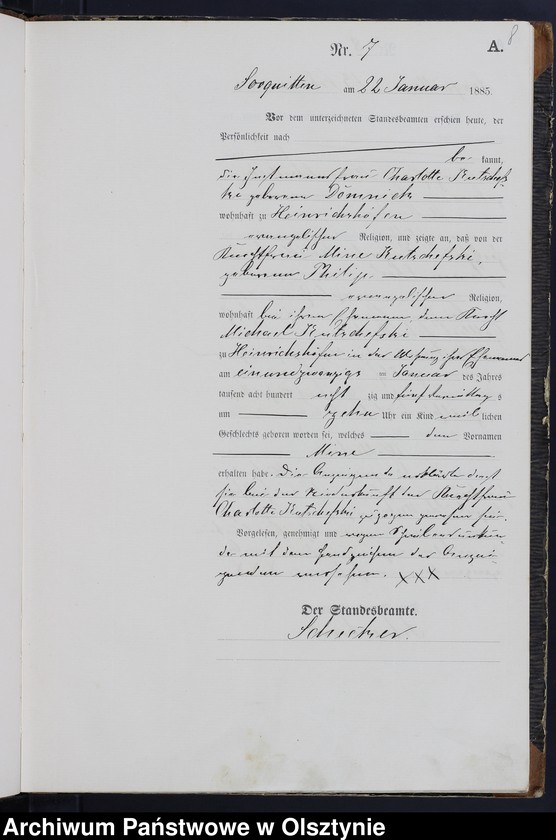 8
Nr. 7 A.
Sorquitten am 22 Januar 1885.
Vor dem unterzeichneten Standesbeamten erschien heute, der
Persönlichkeit nach
be kannt,
die Instmannsfrau Charlotte Kutschefs-
ke geborene Dominick
wohnhaft zu Heinrichshöfen
evangelischer Religion, und zeigte an, daß von der
Knechtfrau Mine Kutschefski,
geborene Philip
evangelischer Religion,
wohnhaft bei ihrem Ehemann dem Knecht
Michael Kutschefski
zu Heinrichshöfen in der Wohnung ihres Ehemannes
am einundzwanzigs ten Januar des Jahres
tausend acht hundert acht zig und fünf Vormittag s
um zehn Uhr ein Kind weib lichen
Geschlechts geboren worden sei, welches den Vornamen
Mine
erhalten habe. Die Anzeigende erklärte daß
sie bei der Niederkunft der Knechtfrau
Charlotte Kutschefski zugegen gewesen sei.
Vorgelesen, genehmigt und wegen Schreibensunkun-
de mit dem Handzeichen der Anzei-
genden versehen. XXX
Der Standesbeamte.
Archiwum Państwowe w Olsztynie